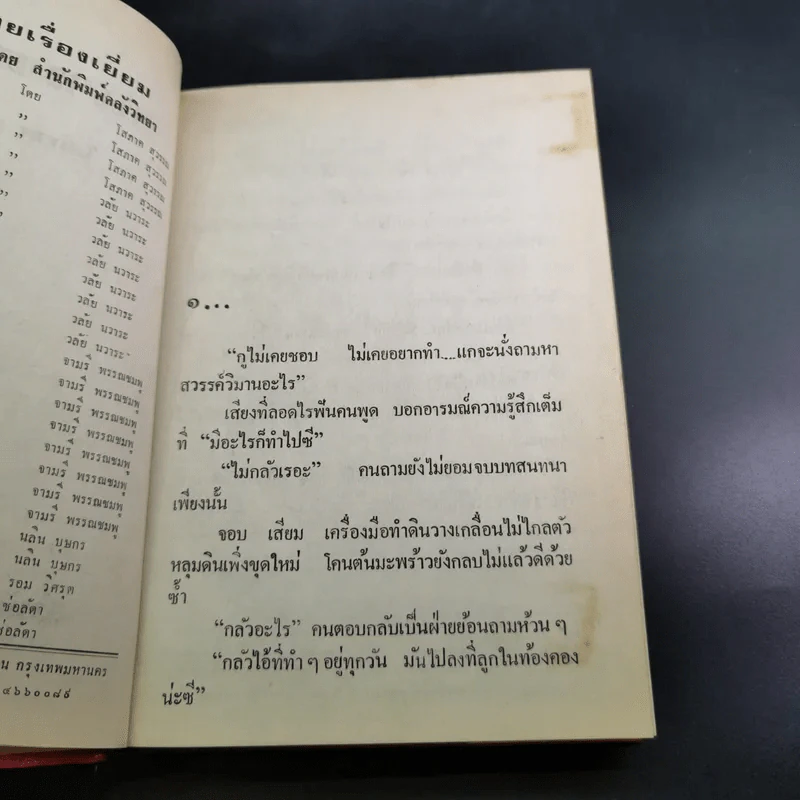 ยเรื่องเยี่ยม
ดย สำนักพิมพ์คลังวิทยา
โดย โสภาค สุวรรณ
” โสภาค สุวรรณ
” โสภาค สุวรรณ
” โสภาค สุวรรณ
” วลัย นวาระ
” วลัย นวาระ
” วลัย นวาระ
วลัย นวาระ
วลัย นวาระ
วลัย นวาระ
วลัย นวาระ
จามรี พรรณชมพู
จามรี พรรณชมพู
จามรี พรรณชมพู
จามรี พรรณชมพู
จามรี พรรณชมพู
จามรี พรรณชมพู
จามรี พรรณชมพู
จามรี พรรณชมพู
นลิน บุษกร
นลิน บุษกร
รอม วิศรุต
ช่อลัดา
ช่อลัดา
น กรุงเทพมหานคร
๔๖๖๐๐๘๙
๑...
“กูไม่เคยชอบ ไม่เคยอยากทำ....แกจะนั่งถามหา
สวรรค์วิมานอะไร”
เสียงที่ลอดไรฟันคนพูด บอกอารมณ์ความรู้สึกเต็ม
ที่ “มีอะไรก็ทำไปซี”
“ไม่กลัวเรอะ” คนถามยังไม่ยอมจบบทสนทนา
เพียงนั้น
จอบ เสียม เครื่องมือทำดินวางเกลื่อนไม่ไกลตัว
หลุมดินเพิ่งขุดใหม่ โคนต้นมะพร้าวยังกลบไม่แล้วดีด้วย
ซ้ำ
“กลัวอะไร” คนตอบกลับเป็นฝ่ายย้อนถามห้วน ๆ
“กลัวไอ้ที่ทำ ๆ อยู่ทุกวัน มันไปลงที่ลูกในท้องคอง
น่ะซี”